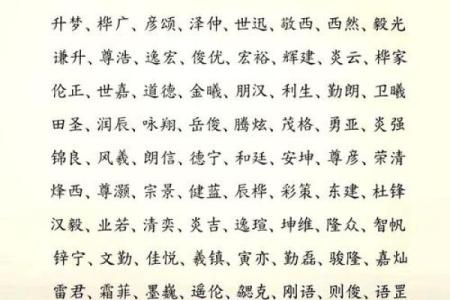 升梦、桦广、彦颂、泽仲、世迅、敬西、西然、毅光
谦升、尊浩、逸宏、俊优、宏裕、辉建、炎云、桦家
伦正、世嘉、道德、金曦、朋汉、利生、勤朗、卫曦
田圣、润辰、咏翔、岳俊、腾炫、茂格、勇亚、炎强
锦良、风羲、朗信、德宁、和廷、安坤、尊彦、荣清
烽西、尊灏、宗景、健蓝、辰桦、彩策、东建、杜锋
汉毅、业若、清奕、炎吉、逸瑄、坤维、隆众、智帆
锌宁、文勤、佳悦、羲镇、寅亦、勤磊、骏隆、嘉灿
雷君、霜菲、墨巍、遥伦、勰克、刚语、则俊、语罡